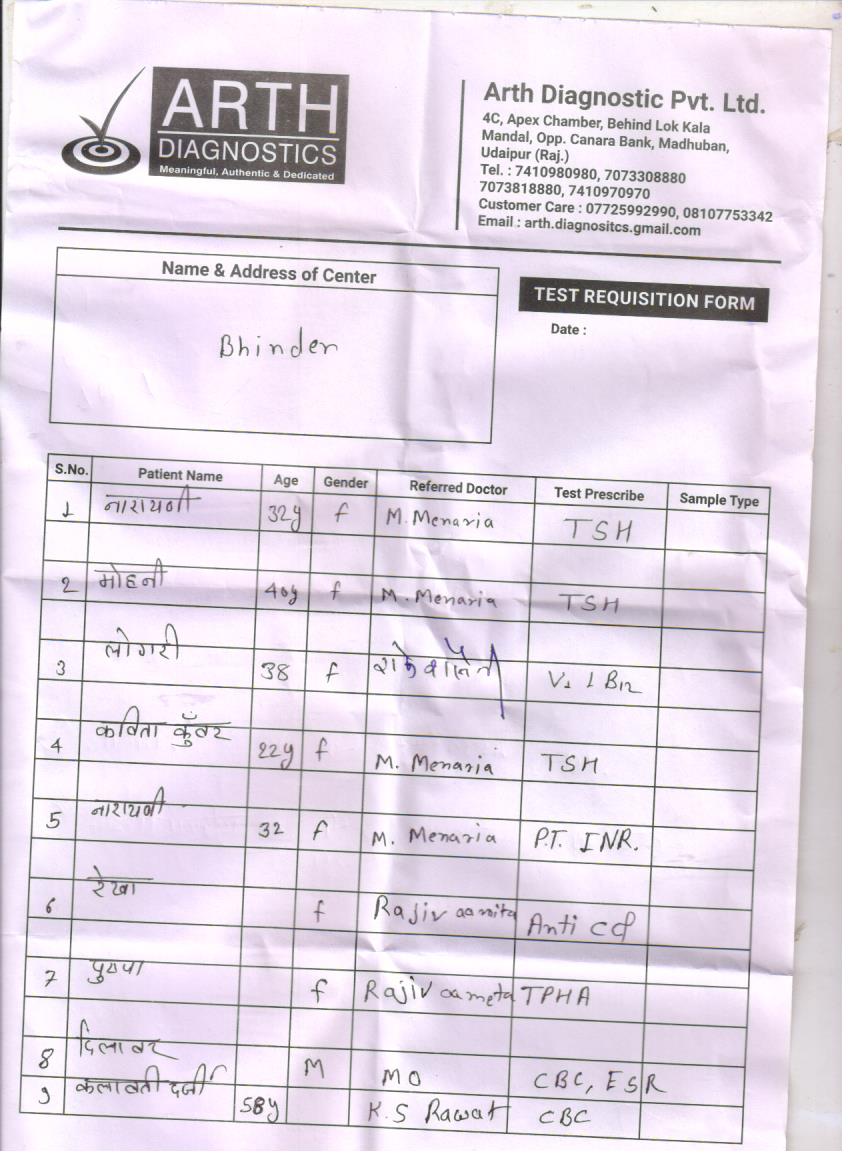 ARTH
DIAGNOSTICS
Meaningful, Authentic & Dedicated
Arth Diagnostic Pvt. Ltd.
4C, Apex Chamber, Behind Lok Kala
Mandal, Opp. Canara Bank, Madhuban,
Udaipur (Raj.)
Tel. : 7410980980, 7073308880
7073818880, 7410970970
Customer Care : 07725992990, 08107753342
Email : arth.diagnositcs.gmail.com
Name & Address of Center
Bhinder
TEST REQUISITION FORM
Date :
S.No. Patient Name Age Gender Referred Doctor Test Prescribe Sample Type
1 नारायणी 32y f M. Menaria TSH
2 मोहनी 40y f M. Menaria TSH
3 लोगरी 38 f B12
4 कविता कुँवर 22y f M. Menaria TSH
5 नारायणी 32 f M. Menaria P.T. INR.
6 रेखा f Rajiv Anti
7 f Rajiv aameta TPHA
8 दिलावर M MO CBC, ESR
9 कलावती दर्जी 58y K.S Rawat CBC